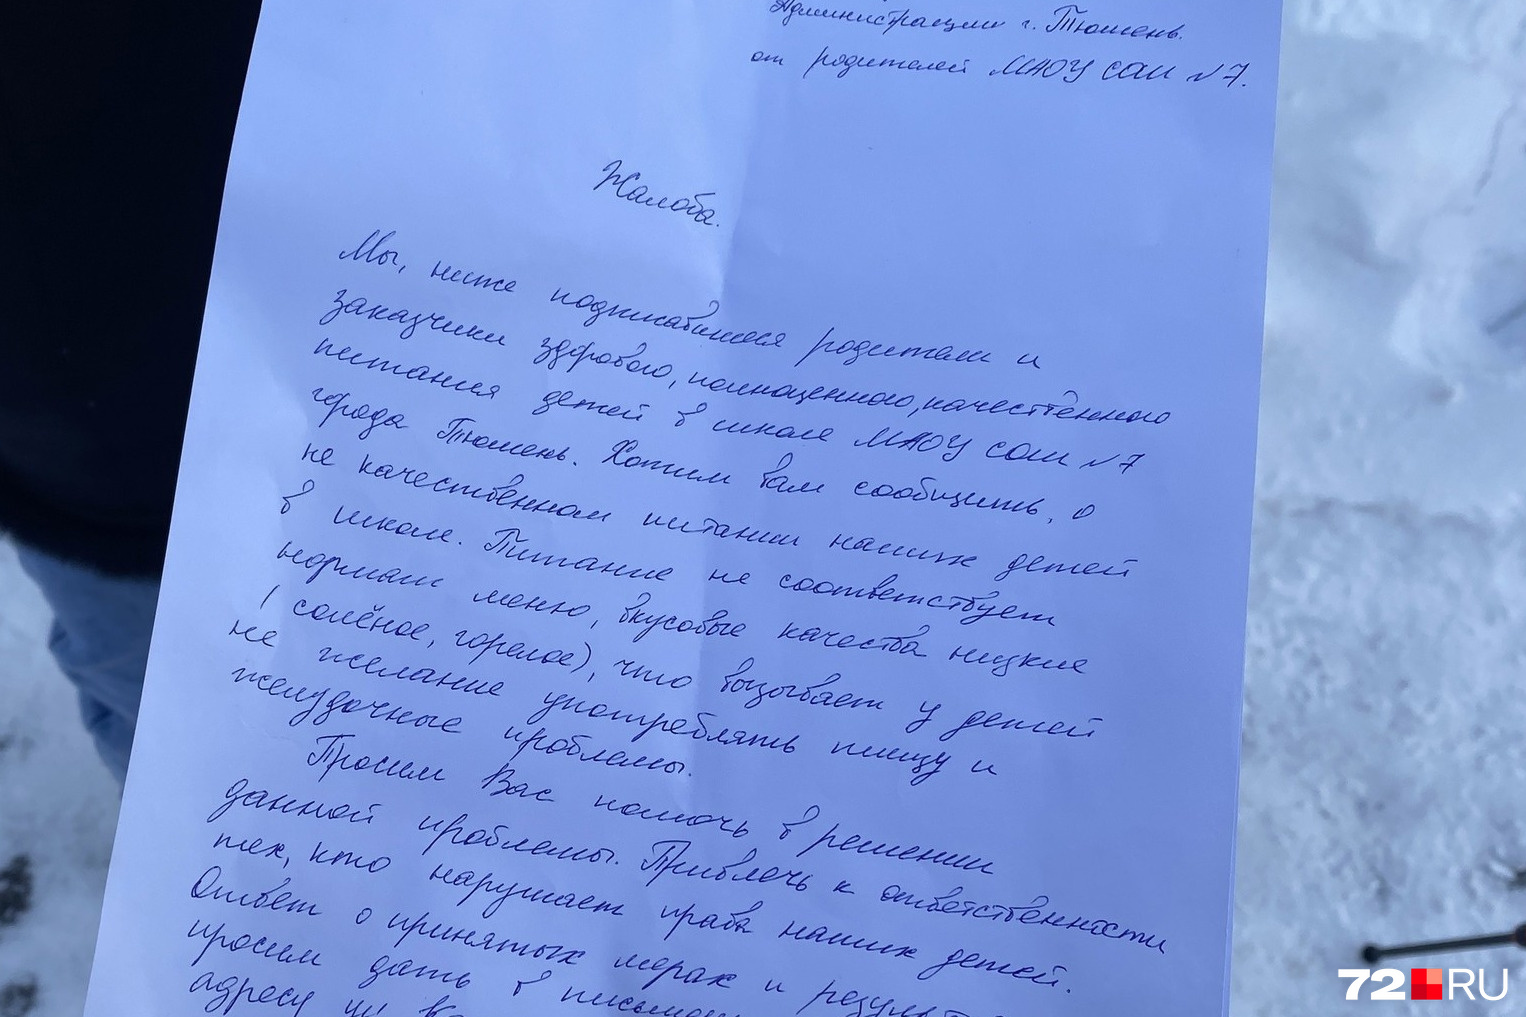 Администрации г. Тюмень.
от родителей МАОУ СОШ №7.
Жалоба.
Мы, ниже подписавшиеся родители и
заказчики здорового, полноценного, качественного
питания детей в школе МАОУ СОШ №7
города Тюмень. Хотим вам сообщить, о
не качественном питании наших детей
в школе. Питание не соответствует
нормам меню, вкусовые качества низкие
(солёное, горелое), что вызывает у детей
не желание употреблять пищу и
желудочные проблемы.
Просим Вас помочь в решении
данной проблемы. Привлечь к ответственности
тех, кто нарушает права наших детей.
Ответ о принятых мерах и
просим дать в
адресу ул.
72.RU